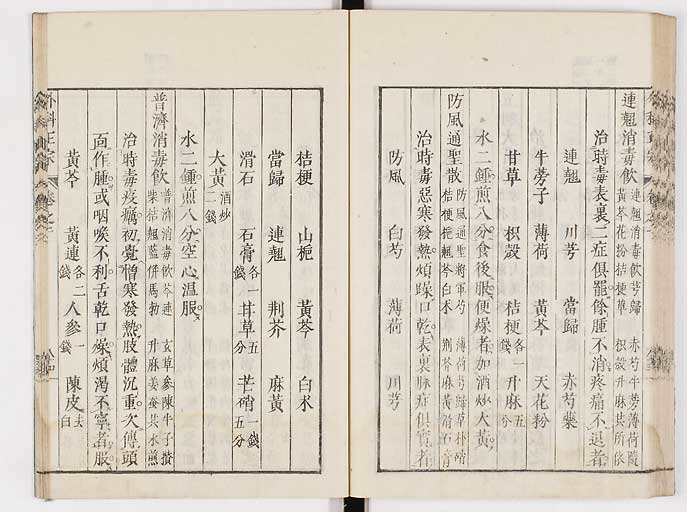 連翹消毒飲 連翹消毒飲芎歸 赤芍牛蒡薄荷
黃芩花粉桔梗草 枳殼升麻共所依
治時毒表裏二症俱罷餘腫不消疼痛不退者
連翹 川芎 當歸 赤芍藥
牛蒡子 薄荷 黃芩 天花粉
甘草 枳殼 桔梗各一錢 升麻五分
水二鍾煎八分食後服便燥者加酒炒大黃
防風通聖散 防風通聖將軍芍 薄荷芎歸草朴硝
桔梗梔翹芩白术 荆芥麻黃滑石膏
治時毒惡寒發熱煩躁口乾表裏脉症俱實者
防風 白芍 薄荷 川芎
桔梗 山梔 黃芩 白术
當歸 連翹 荆芥 麻黃
滑石 石膏各一錢 甘草五分 芒硝一錢五分
大黃酒炒二錢
水二鍾煎八分空心溫服
普濟消毒飲 普濟消毒飲芩連 玄草參陳牛子攢
柴桔翹藍併馬勃 升麻姜蚕共水煎
治時毒疫癘初覺憎寒發熱肢體沉重次傳頭
面作腫或咽喉不利舌乾口燥煩渴不寧者服
黃芩 黃連各二錢 人參一錢 陳皮去白
外科正宗 卷之二